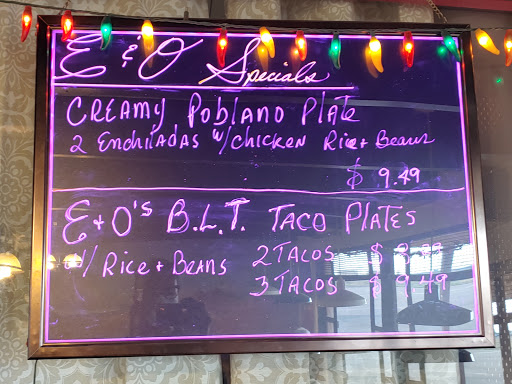 E & O Specials
CREAMY POBLANO PLATE
2 ENCHILADAS W/CHICKEN RICE + BEANS
$ 9.49
E+O'S B.L.T. TACO PLATES
W/ RICE + BEANS 2 TACOS $ 8.99
3 TACOS $ 9.49